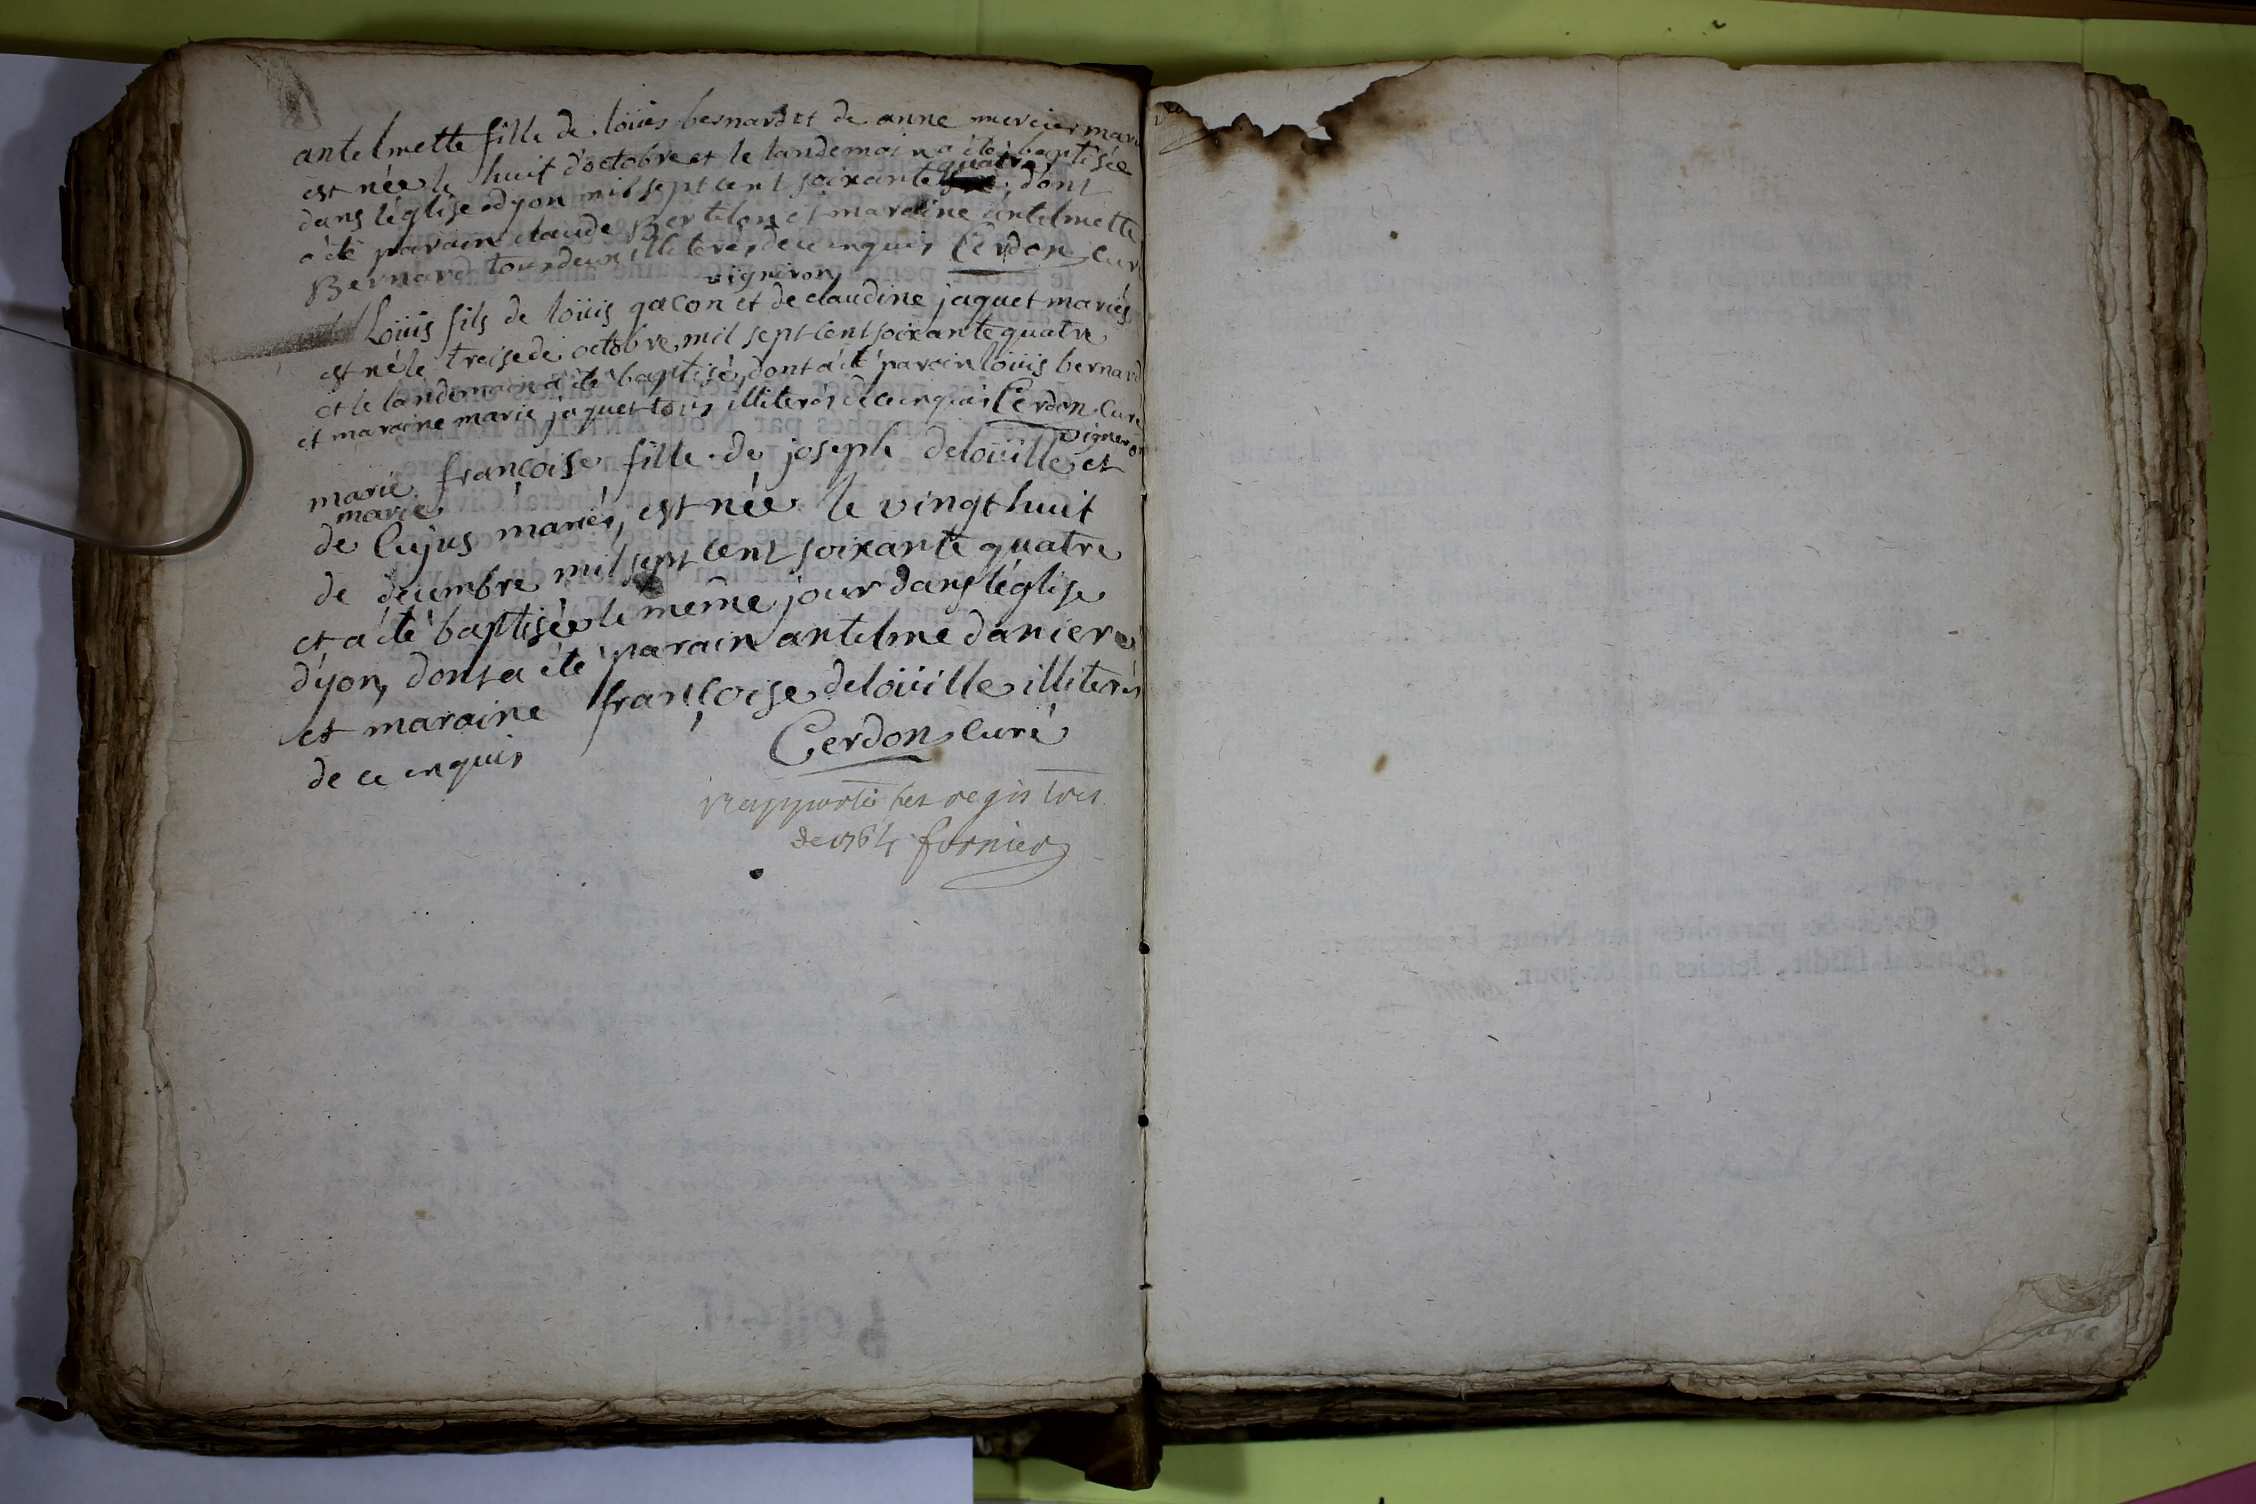 antelmette fille de loüis bernard et de anne mercier mari
est née le huit d'octobre et le landemain a été baptisée
dans l'église dyon mil sept cent soixante quatre, dont
a été parain claude Bertelon et maraine antelmette
Bernard tous deux illiterés de ce enquis Cerdon curé
vigneron
Loüis fils de loüis gacon et de claudine jaquet mariés
est né le treise de octobre mil sept cent soixante quatre
et le landemain a été baptisé, dont a été parain loüis bernard
et maraine marie jaquet tous illiterés de ce enquis Cerdon curé
vigneron
marie françoise fille de joseph deloüille et
marie
de Cujus mariés, est née le vingt huit
de decembre mil sept cent soixante quatre
et a été baptisée le même jour dans l'église
d'yon, dont a été parain antelme daniere
et maraine françoise deloüille illiterés
de ce enquis
Cerdon curé
rapporté les registres
de 1764 fornier